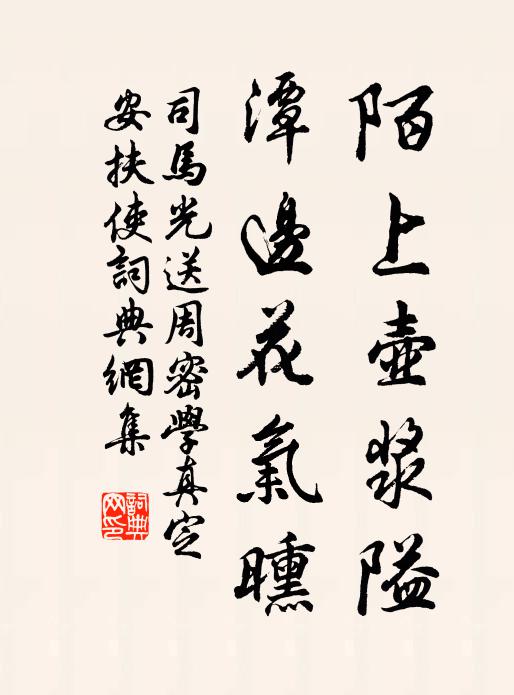 陌上壺漿隘
潭邊花氣曛
司馬光送周密學真定
安扶使詞典網集
詞典
网印